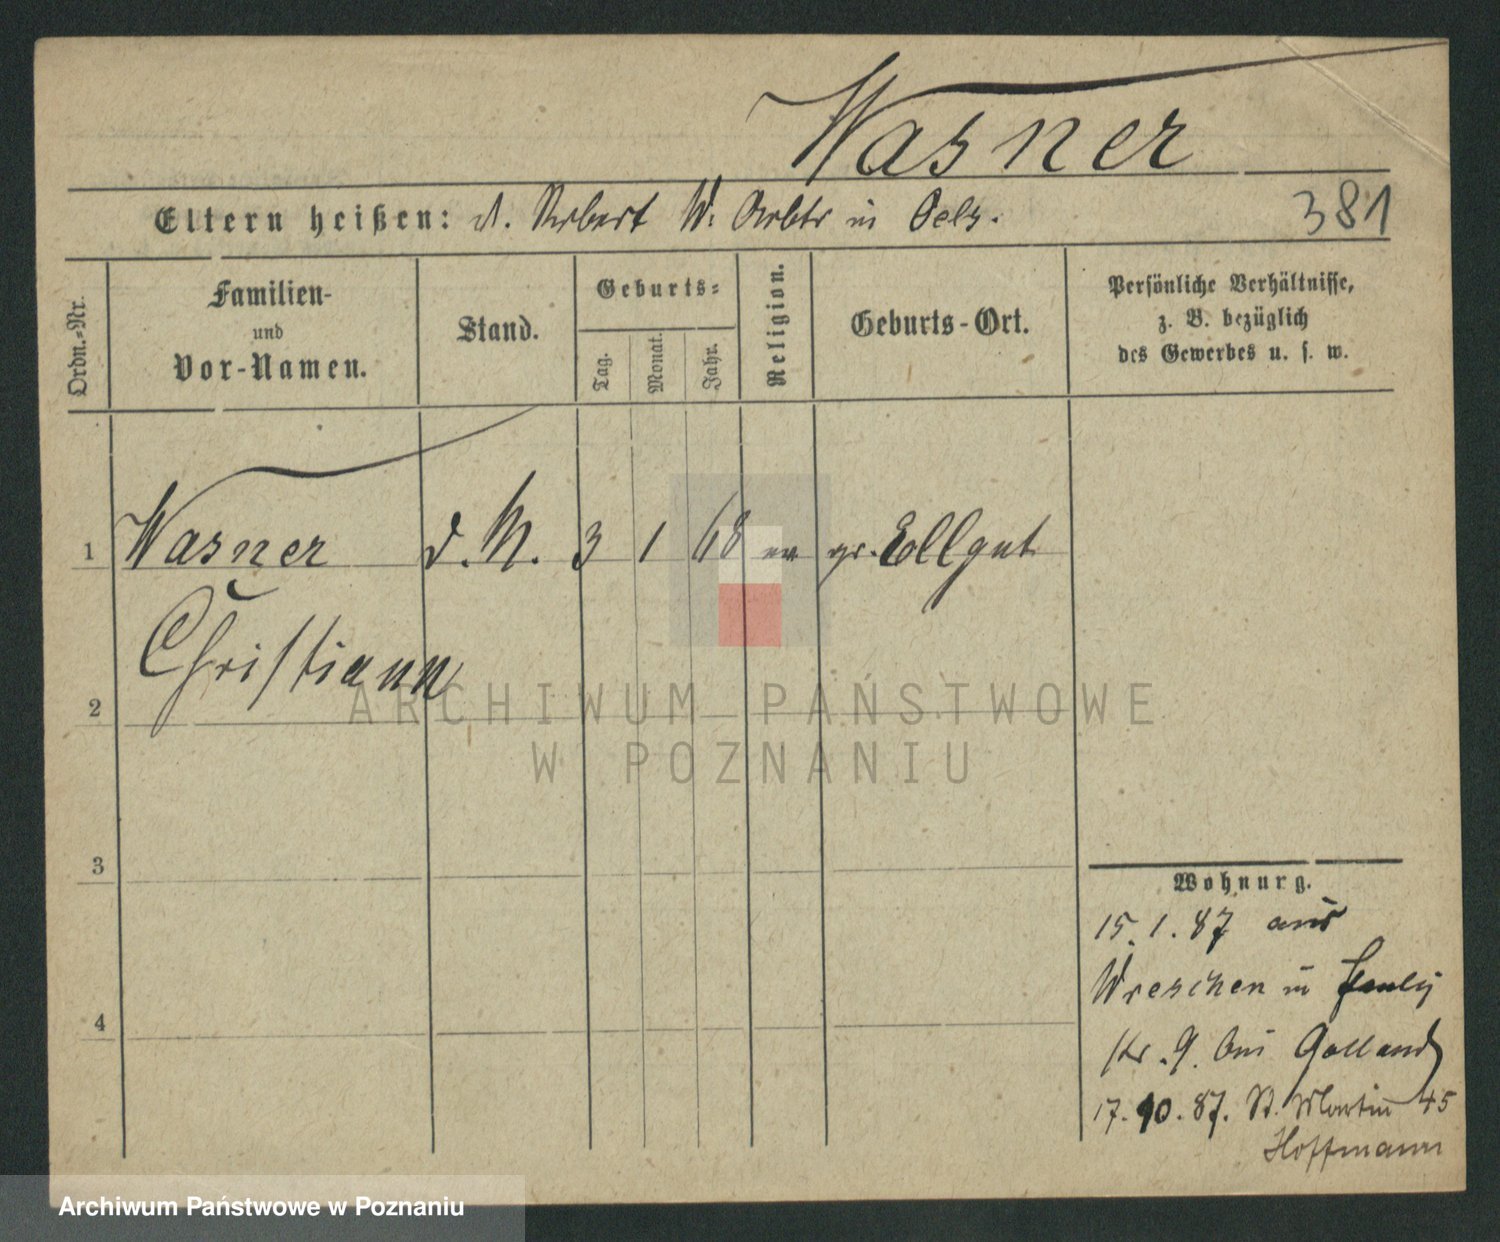 Wasner
Eltern heißen: d. Robert W. Arbtr in Oels.
381
Ordn.-Nr.
Familien-
und
Vor-Namen.
Stand.
Geburts-
Tag.
Monat.
Jahr.
Religion.
Geburts-Ort.
Persönliche Verhältnisse,
z. B. bezüglich
des Gewerbes u. s. w.
1 Wasner d. M. 3 1 68 ev gr. Ellgut
Christiann
2
3
4
Wohnung.
15. 1. 87 aus
Wreschen in
str. 9. bei Golland
17. 10. 87. St. Martin 45
Hoffmann
ARCHIWUM PAŃSTWOWE
W POZNANIU
Archiwum Państwowe w Poznaniu